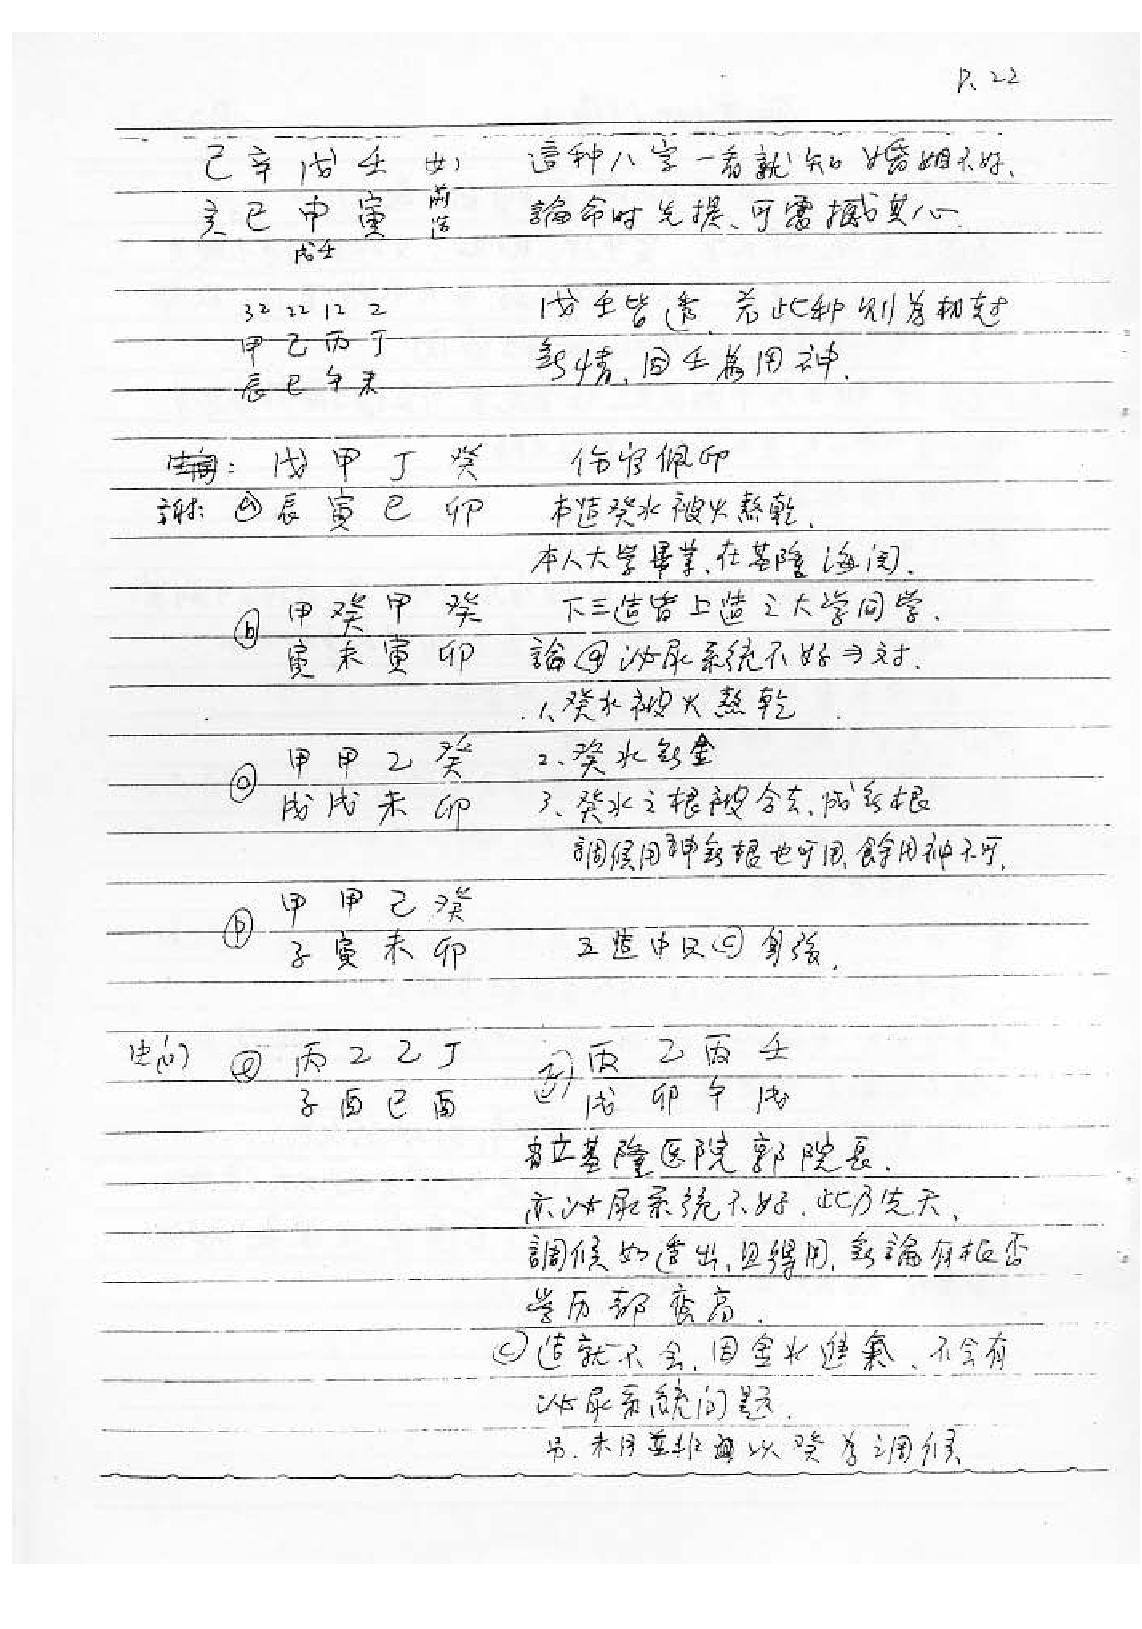 P. 22
己辛戊壬 女 這种八字一看就知婚姻不好、
亥巳申寅 前造 論命时先提、可震撼其心
戊壬
32 22 12 2 戊壬皆透、若此种则為初
甲己丙丁 無情、因壬為用神.
辰巳午未
戊甲丁癸 伤官佩印
ⓐ 辰寅巳卯 本造癸水被火熬乾、
本人大学畢業、在基隆海関.
ⓑ 甲癸甲癸 下三造皆上造之大学同学.
寅未寅卯 論ⓐ泌尿系統不好⇒対.
1、癸水被火熬乾
ⓒ 甲甲乙癸 2、癸水無金
戌戌未卯 3、癸水之根被合去、成無根
調候用神無根也可用、餘用神不可、
ⓓ 甲甲己癸
子寅未卯 五造中只ⓒ身強、
ⓔ 丙乙乙丁 丙乙丙壬
子酉巳酉 戌卯午戌
省立基隆医院郭院長、
亦泌尿系統不好、此乃先天、
調候如透出、且得用、無論有根否
学历都蠻高.
ⓒ造就不会、因金水進氣、不会有
泌尿系統问题.
另、未月並非以癸為調候